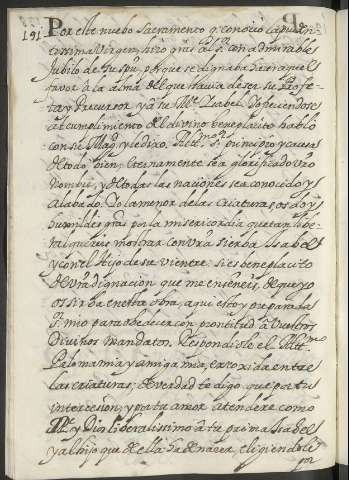 191
Por este nuebo Sacramento q̃ conocio la puri
ssima Virgen, hizo gras al Sr. con admirable
Jubilo de su spu, porque se dignaba hacer aquel
favor a la alma del que havia de ser su Profe
ta y Precursor y a su Me. Isabel. Y ofreciendose
al cumplimiento del divino beneplacito habló
con su Magd. y le dixo. Altmo. Sr. principio y causa
de todo bien: eternamente sea glorificado vro
nombre, y de todas las naciones sea conocido y
alabado. Yo la menor de las criaturas os doy
humildes gras por la misericordia que tan libe
ral quereis mostrar con vra sierba Isabel
y con el Hijo de su vientre. Si es beneplacito
de vra dignacion que me enseñeis, de que yo
os sirba en esta obra, aqui estoy preparada
Sr. mio para obedecer con prontitud à vuestros
Divinos mandatos. Respondiole el Altmo.
Paloma mia, y amiga mia, escoxida entre
las criaturas; de verdad te digo, que por tu
intercesion, y por tu amor atendere como
Pe. y Dios liberalissimo à tu prima Isabel
y al hijo que de ella ha de nacer, eligiendole
por